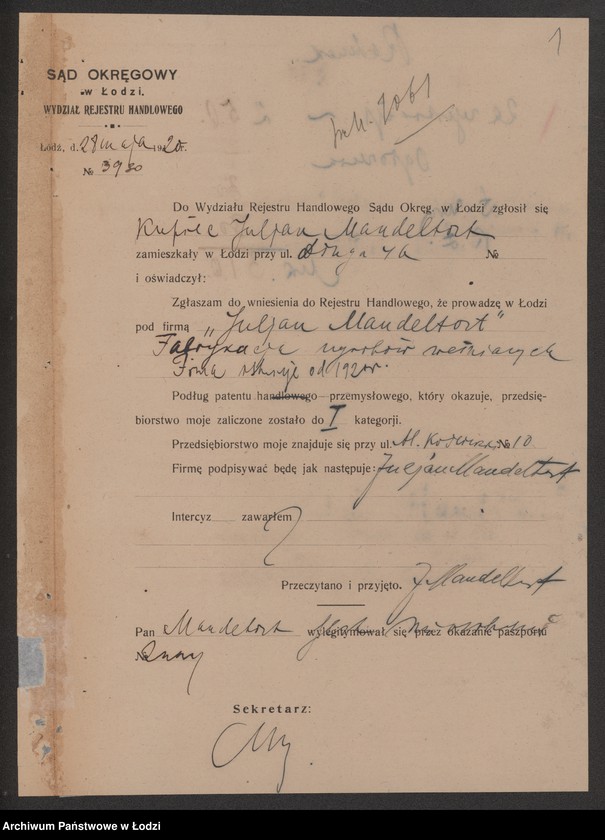 1
SĄD OKRĘGOWY
w Łodzi.
WYDZIAŁ REJESTRU HANDLOWEGO
Łódź, d. 28 maja 1920 r.
№ 3980
Do Wydziału Rejestru Handlowego Sądu Okręg. w Łodzi zgłosił się
Kupiec Juljan Mandeltort
zamieszkały w Łodzi przy ul. Długa 4a №
i oświadczył:
Zgłaszam do wniesienia do Rejestru Handlowego, że prowadzę w Łodzi
pod firmą „Juljan Mandeltort"
Fabrykacja wyrobów wełnianych
Firma istnieje od 1920 r.
Podług patentu handlowego przemysłowego, który okazuje, przedsię-
biorstwo moje zaliczone zostało do I kategorji.
Przedsiębiorstwo moje znajduje się przy ul. Al. № 10
Firmę podpisywać będę jak następuje: Juljan Mandeltort
Intercyz zawarłem
Przeczytano i przyjęto. J Mandeltort
Pan Mandeltort wylegitymował się przez okazanie paszportu
№
Sekretarz:
Archiwum Państwowe w Łodzi